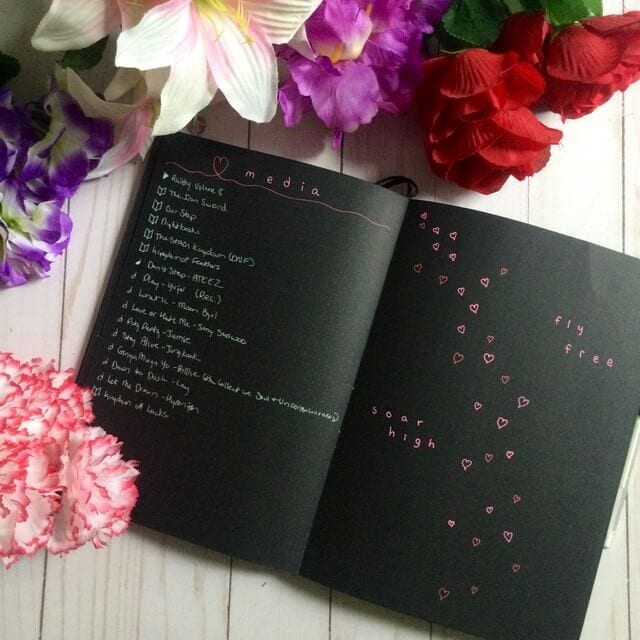 media
RWBY Volume 8
The Iron Sword
Our Stop
Nightbooks
The Stolen Kingdom (DNF)
Kingdom of Feathers
Don't Stop - ATEEZ
Play - Yugi (Rec)
Lunatic - Moon Byul
Love or Hate Me - Song
Pity Party - Jamie
Stay Alive - Jungkook
GingaMingaYo - Billlie (the collective soul + unconscious)
Dawn to Dusk - Lay
Let Me Drown -
Kingdom of Locks
fly
free
soar
high